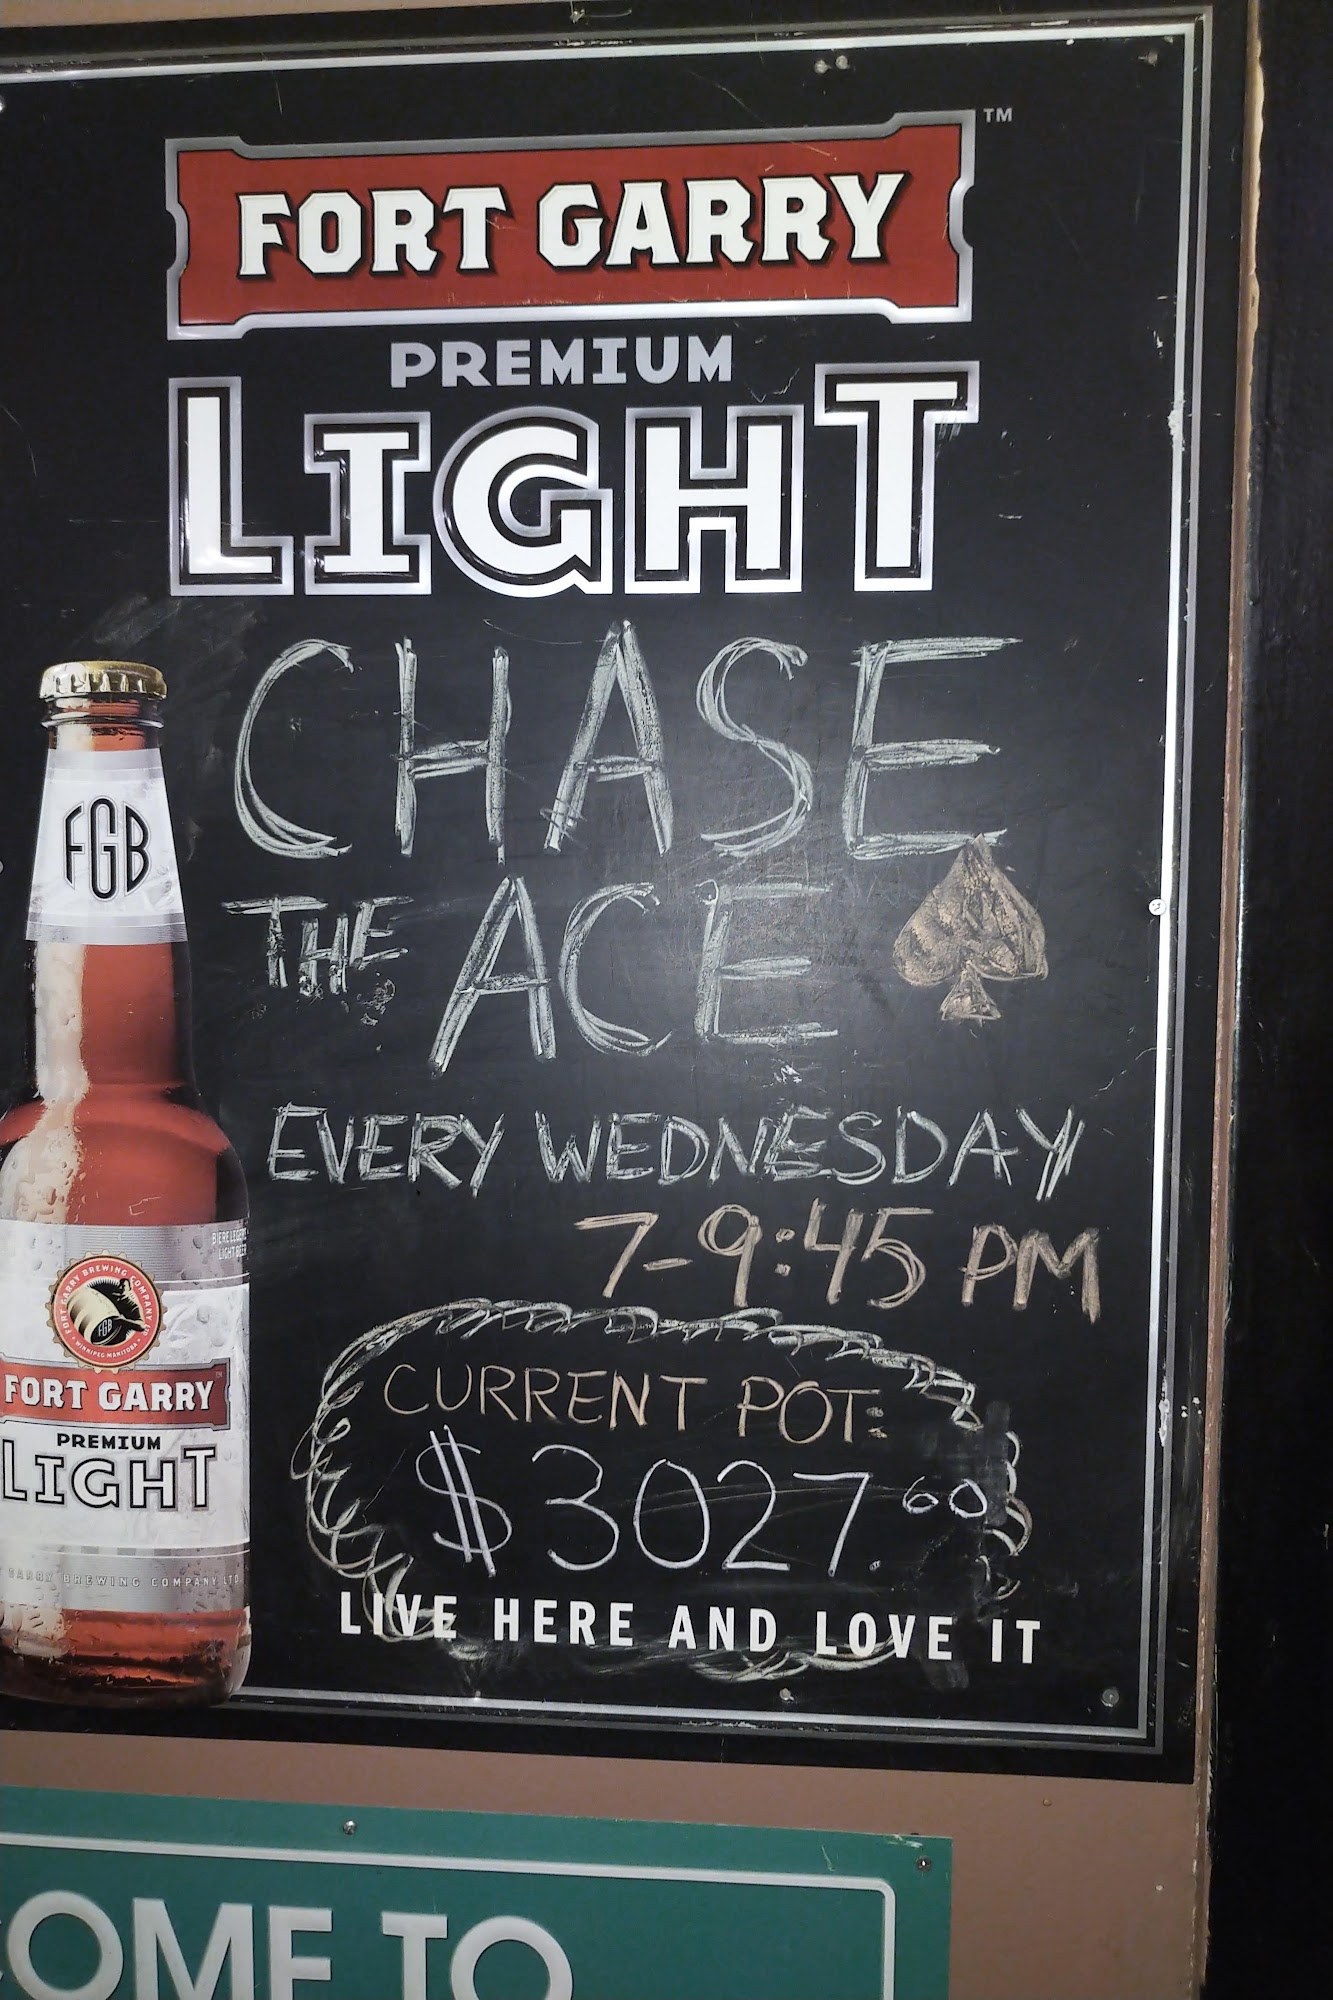 FORT GARRY™
PREMIUM
LIGHT
CHASE
THE ACE
EVERY WEDNESDAY
7-9:45 PM
CURRENT POT:
$3027.60
LIVE HERE AND LOVE IT
FGB
BIÈRE LÉGÈRE
LIGHT BEER
FORT GARRY BREWING COMPANY LTD
FGB
WINNIPEG MANITOBA
FORT GARRY
PREMIUM
LIGHT
GARRY BREWING COMPANY LTD.
COME TO